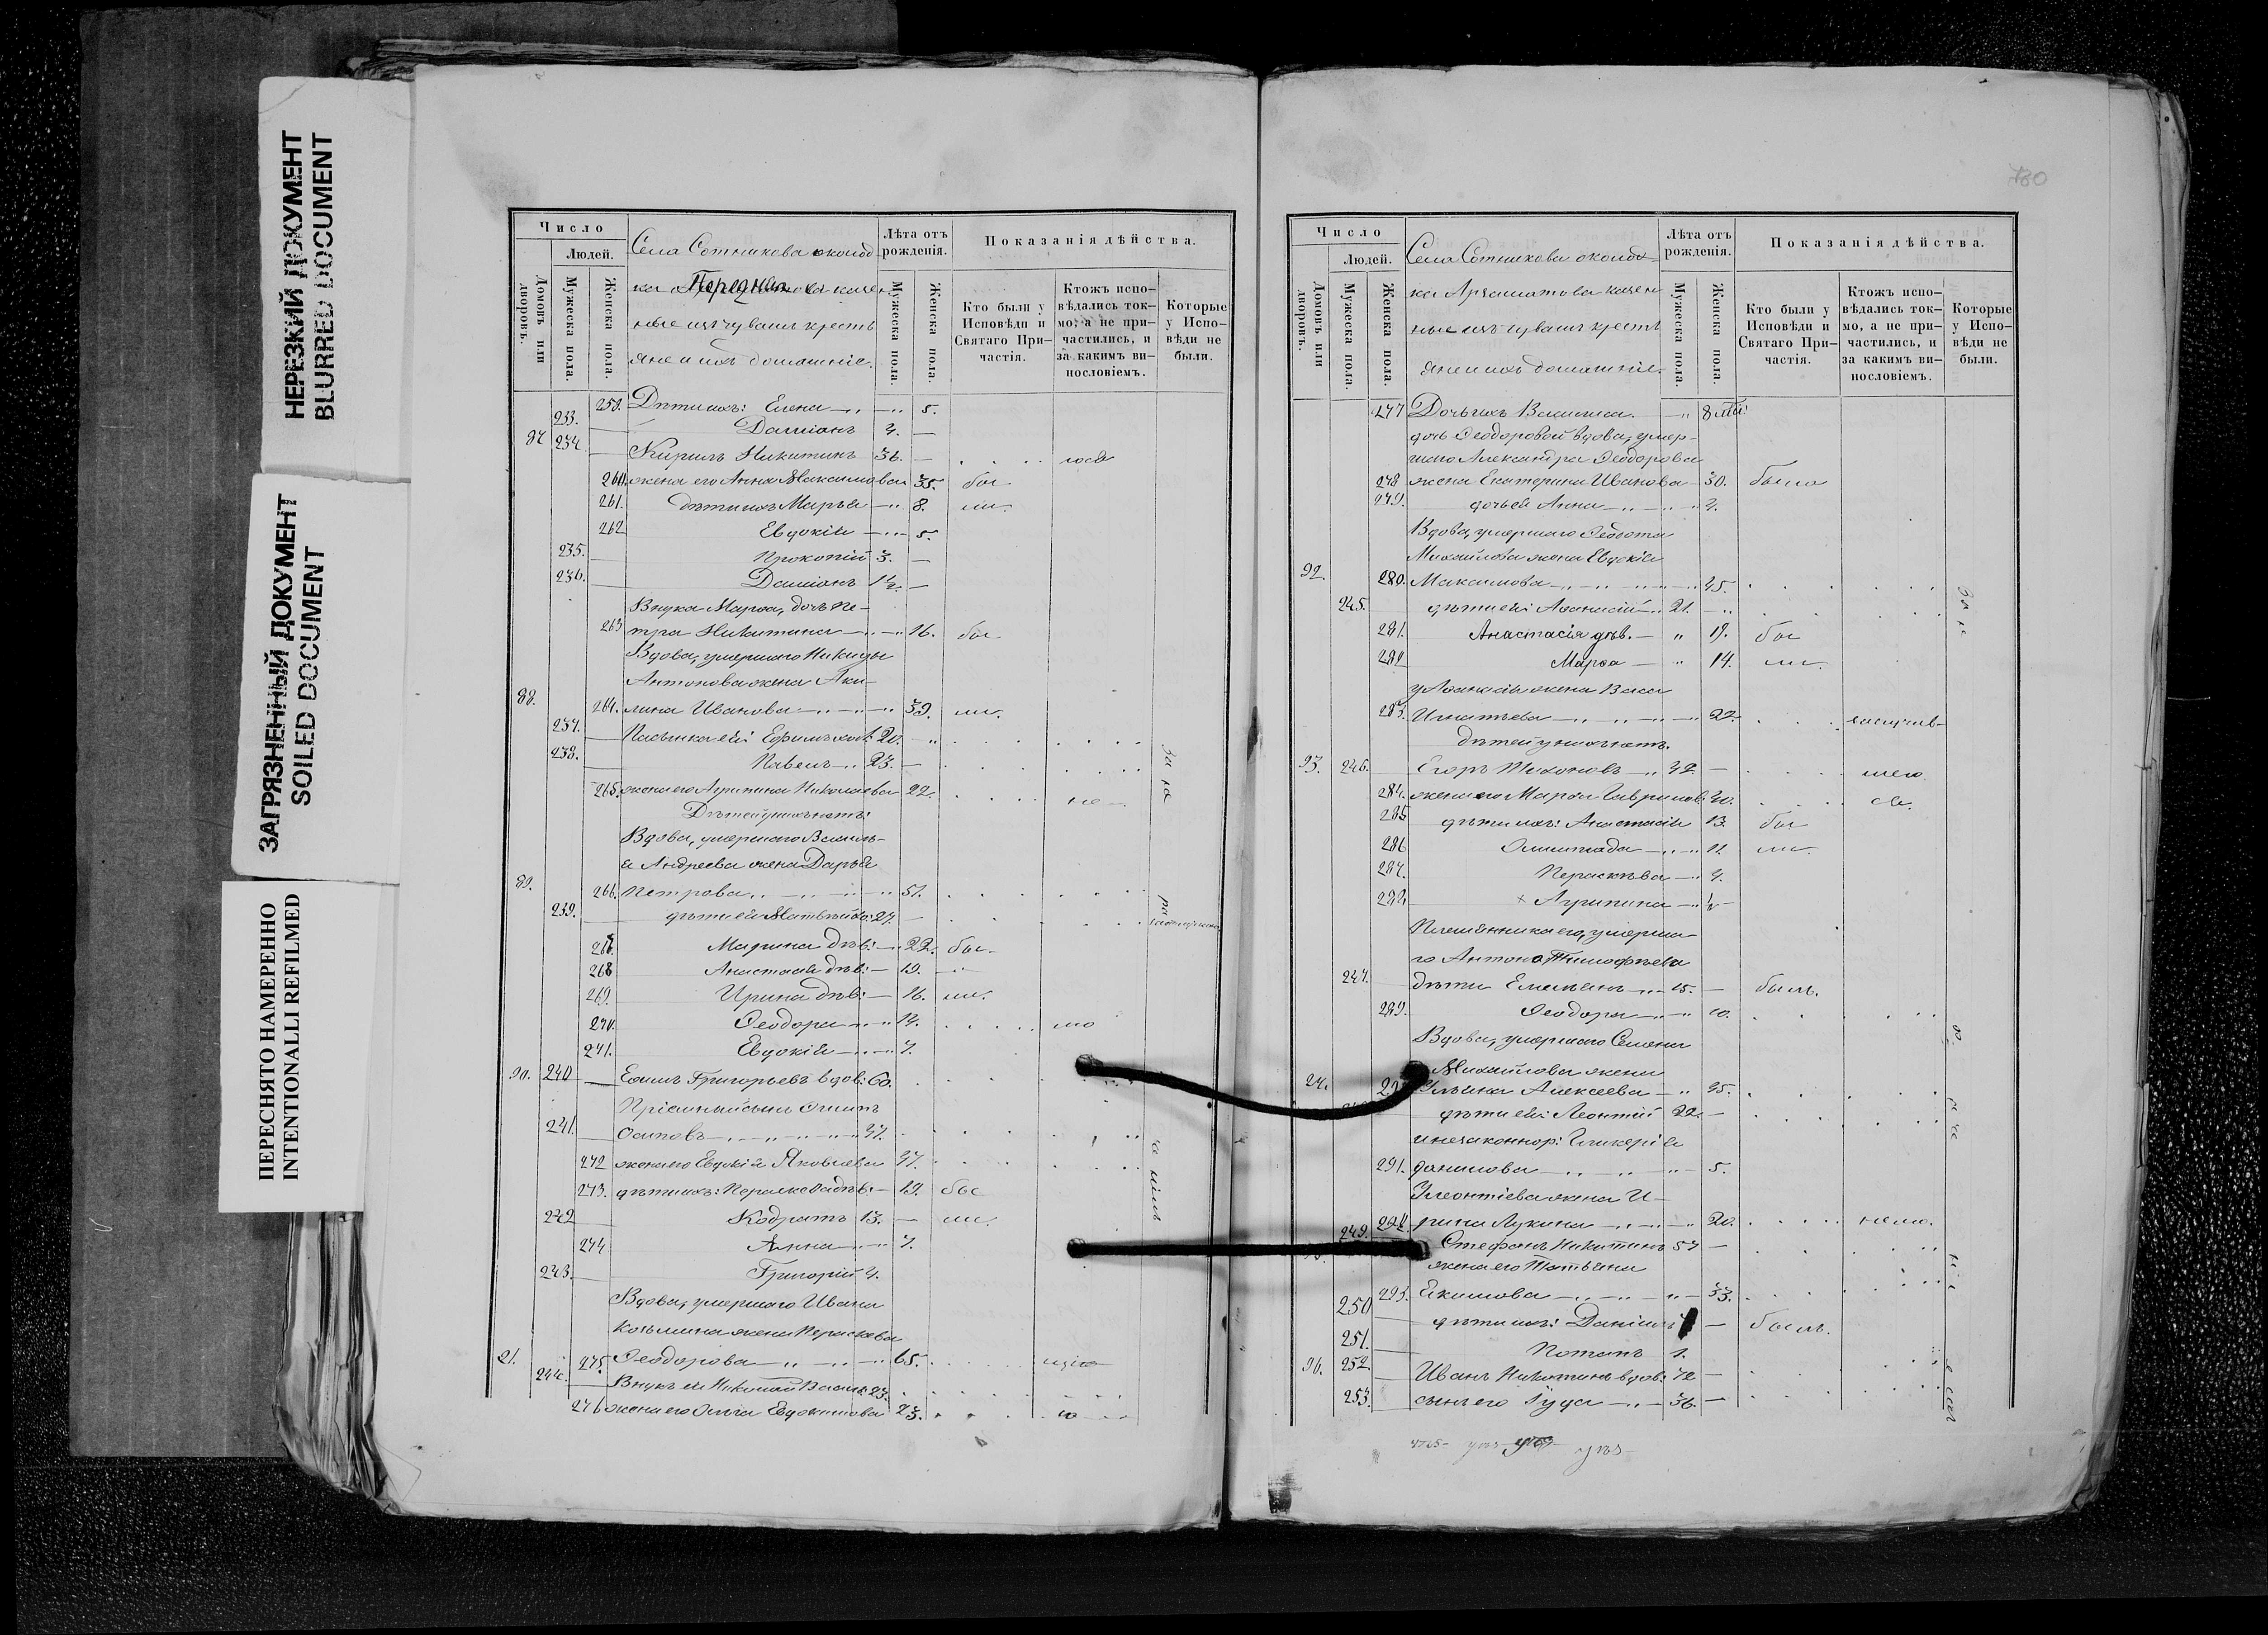 НЕРЕЗКИЙ ДОКУМЕНТ
BLURRED DOCUMENT
ЗАГРЯЗНЕННЫЙ ДОКУМЕНТ
SOILED DOCUMENT
ПЕРЕСНЯТО НАМЕРЕННО
INTENTIONALLI REFILMED
Число
Людей.
Домовъ или дворовъ.
Мужеска пола.
Женска пола.
Села Сотникова околод
ка Передняя казен
ные изъ чувашъ кресть
яне и ихъ домашніе.
Лѣта отъ рожденія.
Мужеска пола.
Женска пола.
Показанія дѣйства.
Кто были у Исповѣди и Святаго Причастія.
Ктожъ исповѣдались токмо, а не причастились, и за какимъ винословіемъ.
Которые у Исповѣди не были.
259. Дѣти ихъ: Елена 5.
233. Даміанъ 4.
87 234. Кирилъ Никитинъ 36.
260. жена его Анна Максимова 35. бы
261. дѣти ихъ Марья 8. ли.
262 Евдокія 5.
235. Прокопій 3.
236. Даміанъ 1½.
Внука Марѳа, дочь Пе-
263 тра Никитина 16. бы
Вдова, умершаго Никиты
Антонова жена Аку-
88. 264. лина Ивановa 39. ли.
237. Пасынка ей: Ефимъ хол: 20.
238. Павелъ 23.
265. жена его Агрипина Николаева 22. не
Дѣтей у нихъ нѣтъ:
Вдова, умершаго Василь-
я Андреева жена Дарья
89. 266. Петрова 51.
239. дѣти ей Матвѣй хо: 27.
267. Марина дѣв: 22. бы
268 Анастасія дѣв: 19.
269. Ирина дѣв: 16. ли.
270. Ѳеодора 14.
271. Евдокія 7.
90. 240 Ефимъ Григорьевъ вдов: 60.
Пріемный сынъ Осипъ
241. Осиповъ 47.
272 жена его Евдокія Яковлева 47.
273. дѣти ихъ: Параскева дѣв: 19. бы
242 Кодратъ 13. ли.
274 Анна 7.
243. Григорій 4.
Вдова, умершаго Ивана
Козьмина жена Параскева
91. 275. Ѳеодорова 65.
244. Внукъ ей Николай Васил: 23.
276 жена его Ольга Евдокимова 23.
780
Число
Людей.
Домовъ или дворовъ.
Мужеска пола.
Женска пола.
Села Сотникова околод
ка Арзаматова казен
ные изъ чувашъ кресть
яне и ихъ домашніе.
Лѣта отъ рожденія.
Мужеска пола.
Женска пола.
Показанія дѣйства.
Кто были у Исповѣди и Святаго Причастія.
Ктожъ исповѣдались токмо, а не причастились, и за какимъ винословіемъ.
Которые у Исповѣди не были.
277 Дочь ихъ Василиса. 8
дочь Ѳеодоровой вдова, умер-
шаго Александра Ѳеодорова
278 жена Екатерина Иванова 30. была
279. дочь ей Анна 4.
Вдова, умершаго Ѳедота
Михайлова жена Евдокія
92. 280. Максимова 45.
245. дѣти ей: Аѳанасій 21.
281. Анастасія дѣв. 19. бы
282 Марѳа 14. ли.
у Аѳанасія жена Васса
283. Игнатьева 22.
дѣтей у нихъ нѣтъ.
93. 246. Егоръ Тихоновъ 42
284. жена его Марѳа Гаврилов: 40.
285 дѣти ихъ: Анастасія 13. бы
286 Олимпіада 11. ли.
287. Параскева 4.
288. × Агрипина ½
Племянника его, умерша-
го Антона Тимофѣева
247. дѣти Емельянъ 15. былъ.
289. Ѳеодора 10.
Вдова, умершаго Семена
Михайлова жена
94. Ульяна Алексеева 45.
дѣти ей: Леонтій 22.
и незаконнор: Гликерія
291. данилова 5.
У Леонтіева жена И-
292. рина Лукина 20.
249. Стефанъ Никитинъ 57
жена его Татьяна
293. Екимова 53.
250 дѣти ихъ: Даніилъ былъ.
251. Потапъ 1.
96. 252. Иванъ Никитинъ вдов: 72
253. сынъ его Іуда 36.